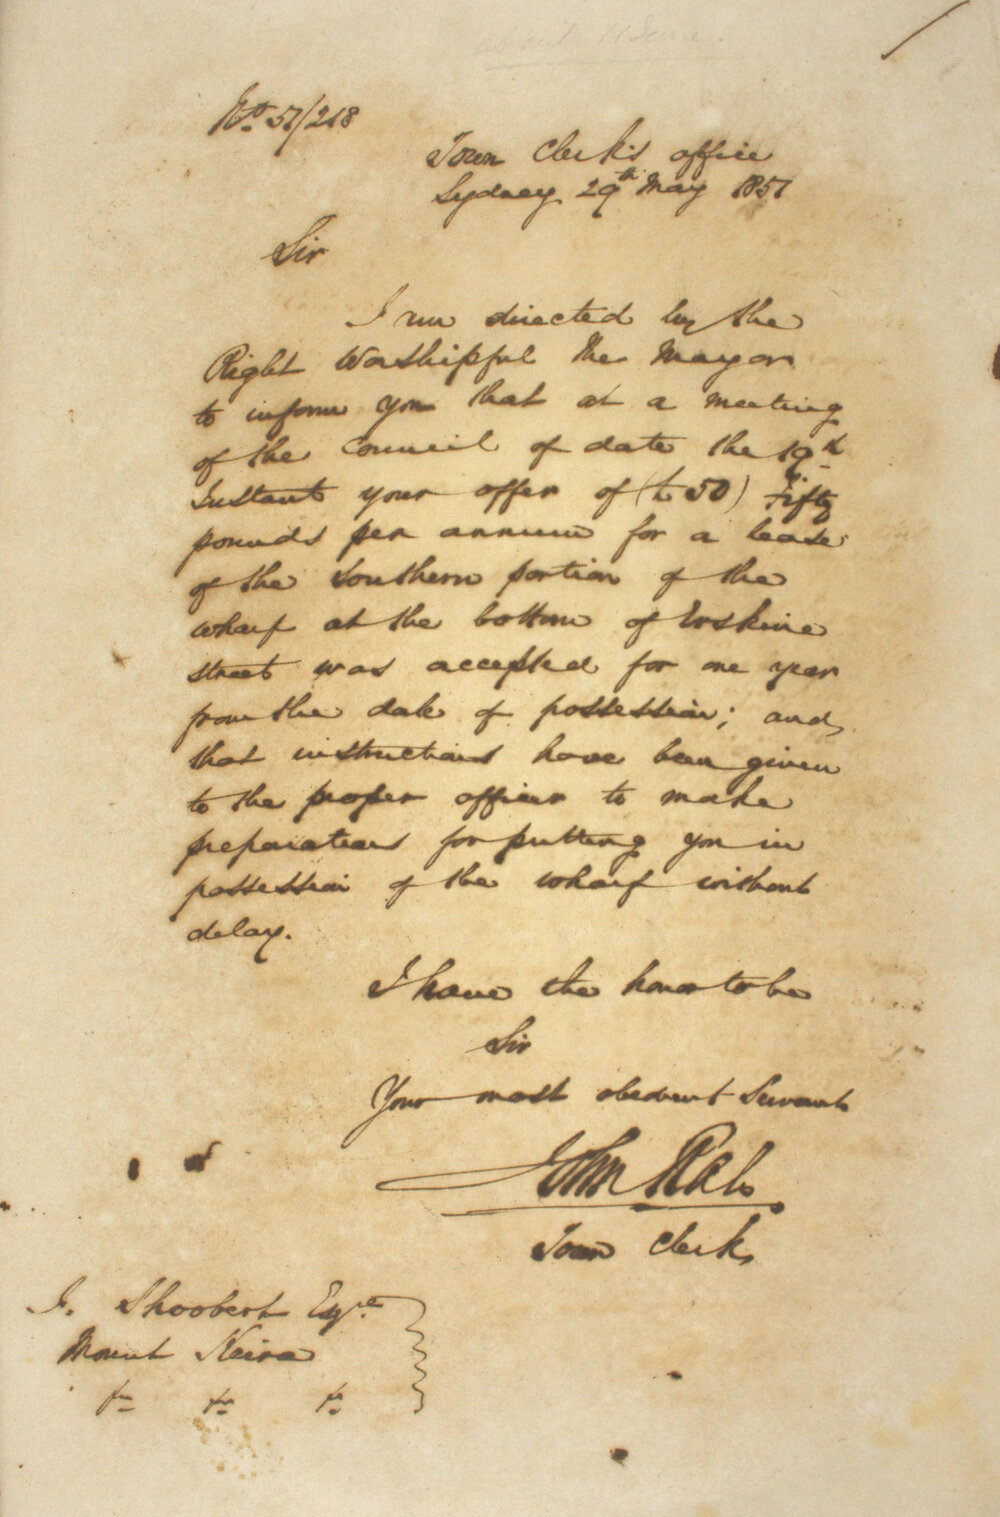 No. 57/218
Town Clerk's office
Sydney 29th May 1857
Sir
I am directed by the
Right Worshipful the Mayor
to inform you that at a meeting
of the Council of date the 19th
Instant your offer of (£50) Fifty
pounds per annum for a lease
of the Southern portion of the
wharf at the bottom of Erskine
street was accepted for one year
from the date of possession; and
that instructions have been given
to the proper officer to make
preparations for putting you in
possession of the wharf without
delay.
I have the honor to be
Sir
Your most obedient Servant
John Rae
Town Clerk
J. Shoobert Esqre
Mount Keira